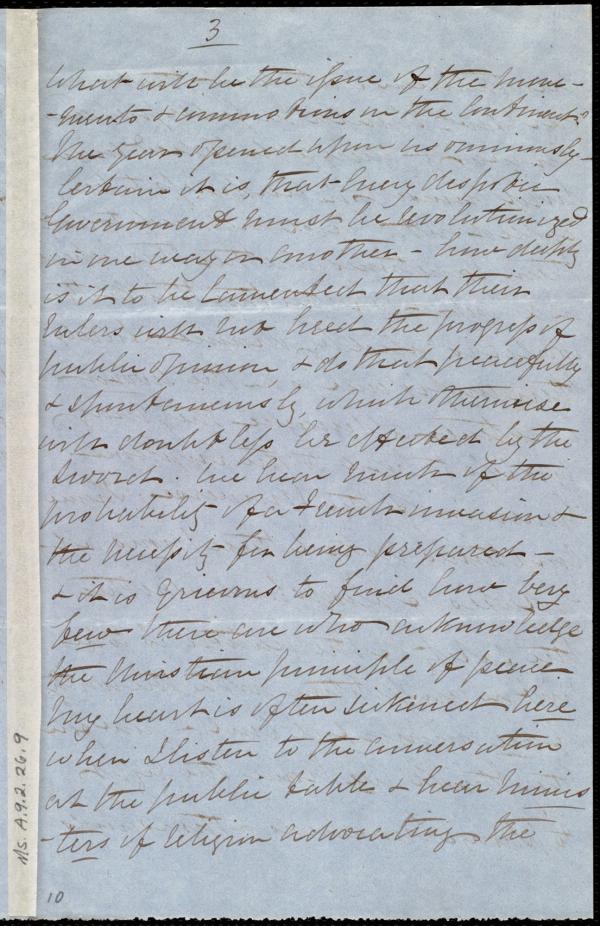 3
What will be the issue of the move-
-ments & commotions on the Continent?
The year opened upon us ominously -
Certain it is, that every despotic
Government must be revolutionized
in one way or another - how deeply
is it to be lamented that their
rulers will not heed the progress of
public opinion, & do that peacefully
& spontaneously, which otherwise
will doubtless be effected by the
Sword. We hear much of the
probability of a French invasion &
the necessity for being prepared -
& it is grievous to find how very
few there are who acknowledge
the Christian principle of peace
My heart is often sickened here
when I listen to the conversation
at the public table & hear minis
-ters of religion advocating the
10
Ms. A.9.2.26.9